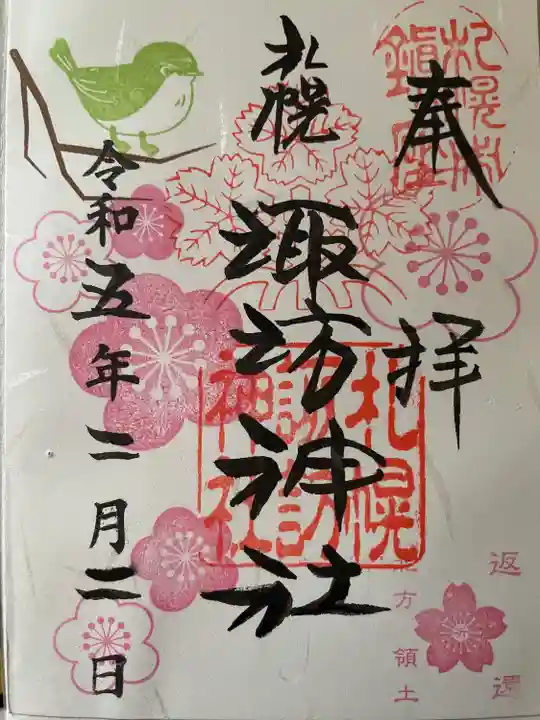 奉拝
札幌
諏訪神社
令和五年二月二日
札幌
諏訪
神社
札幌
鎮座
返還
方領土